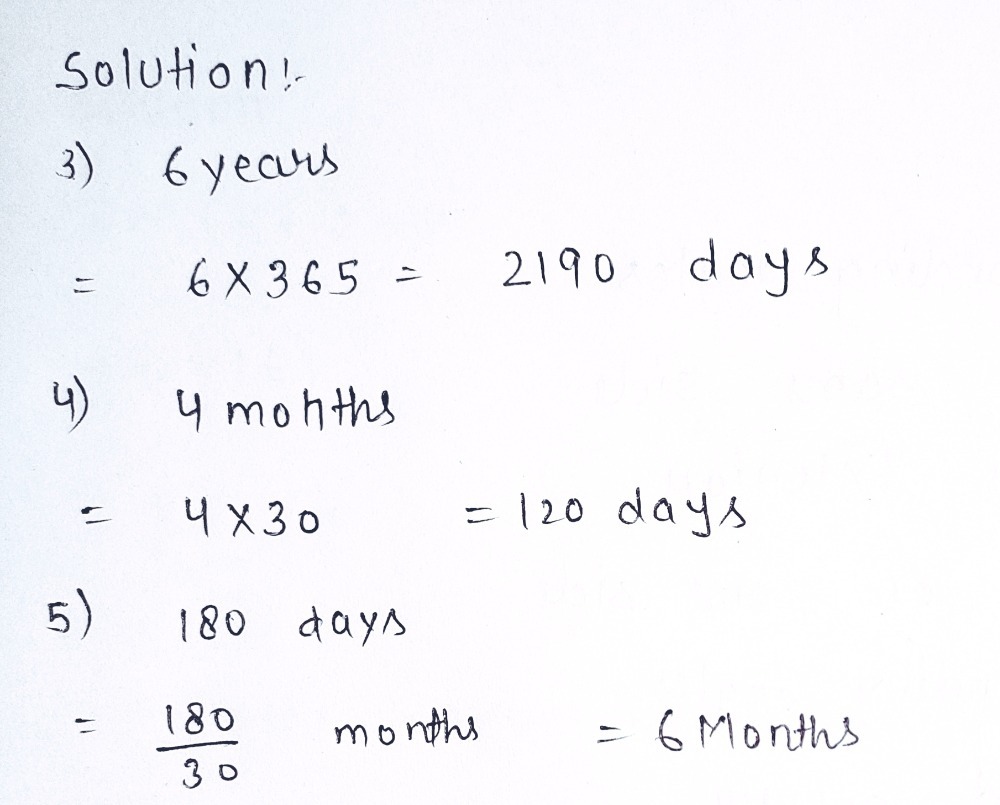 Solution:-
3) 6 years
= 6 X 365 = 2190 days
4) 4 months
= 4 X 30 = 120 days
5) 180 days
= 180/30 months = 6 Months